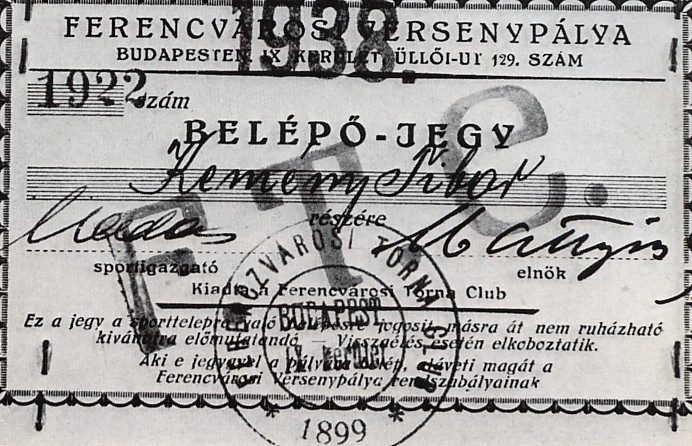 1938.
FERENCVÁROSI VERSENYPÁLYA
BUDAPESTEN, IX. KERÜLET, ÜLLŐI-UT 129. SZÁM
1922 szám
BELÉPŐ-JEGY
F. T. C.
Kemény Tibor
részére
sportigazgató
elnök
Kiadta a Ferencvárosi Torna Club
Ez a jegy a sporttelepre való belépésre jogosit, másra át nem ruházható
kivánatra előmutatandó — Visszaélés esetén elkoboztatik.
Aki e jegygyel a pályára belép, aláveti magát a
Ferencvárosi Versenypálya rendszabályainak
FERENCZVÁROSI TORNA CLUB
BUDAPEST
IX. kerület
* 1899 *